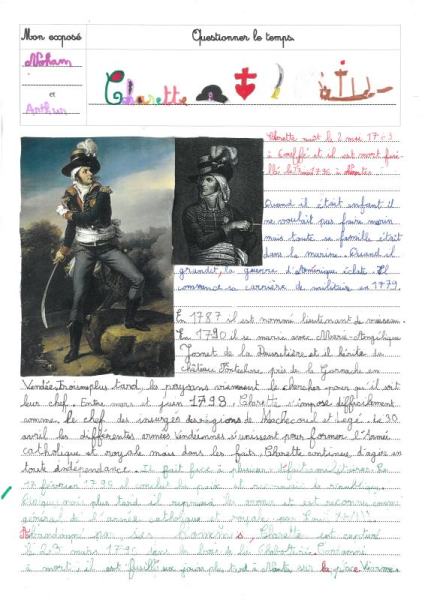 Mon exposé
Questionner le temps.
Noham
et
Arthur
Charette
Charette naît le 2 mai 1763
à Couffé et il est mort fusi-
llé le 29 mars 1796 à Nantes.
Quand il était enfant il
ne voulait pas faire marin
mais toute sa famille était
dans la marine. Quand il
grandit, la guerre d'Amérique éclate. Il
commence sa carrière de militaire en 1779.
En 1787 il est nommé lieutenant de vaisseau.
En 1790 il se marie avec Marie-Angélique
Josnet de la et il hérite du
château Fonteclose, près de la Garnache en
Vendée. Trois plus tard, les paysans viennent le chercher pour qu'il soit
leur chef. Entre mars et juin 1793, Charette s'impose difficilement
comme le chef des insurgés des régions de Machecoul et Legé. Le 30
avril les différentes armées vendéennes s'unissent pour former l'Armée
catholique et royale mais dans les faits, Charette continue d'agir en
toute indépendance. Il fait face à plusieurs défaites militaires. Le
17 février 1795 il la paix et reconnaît la république.
mois plus tard il reprend les armes et est reconnu comme
général de l'armée catholique et royale par Louis XVIII
Abandonné par ses hommes, Charette est capturé
le 23 mars 1796 dans le bois de la Chabotterie. Condamné
à mort, il est fusillé six jours plus tard à Nantes sur la place Viarme.